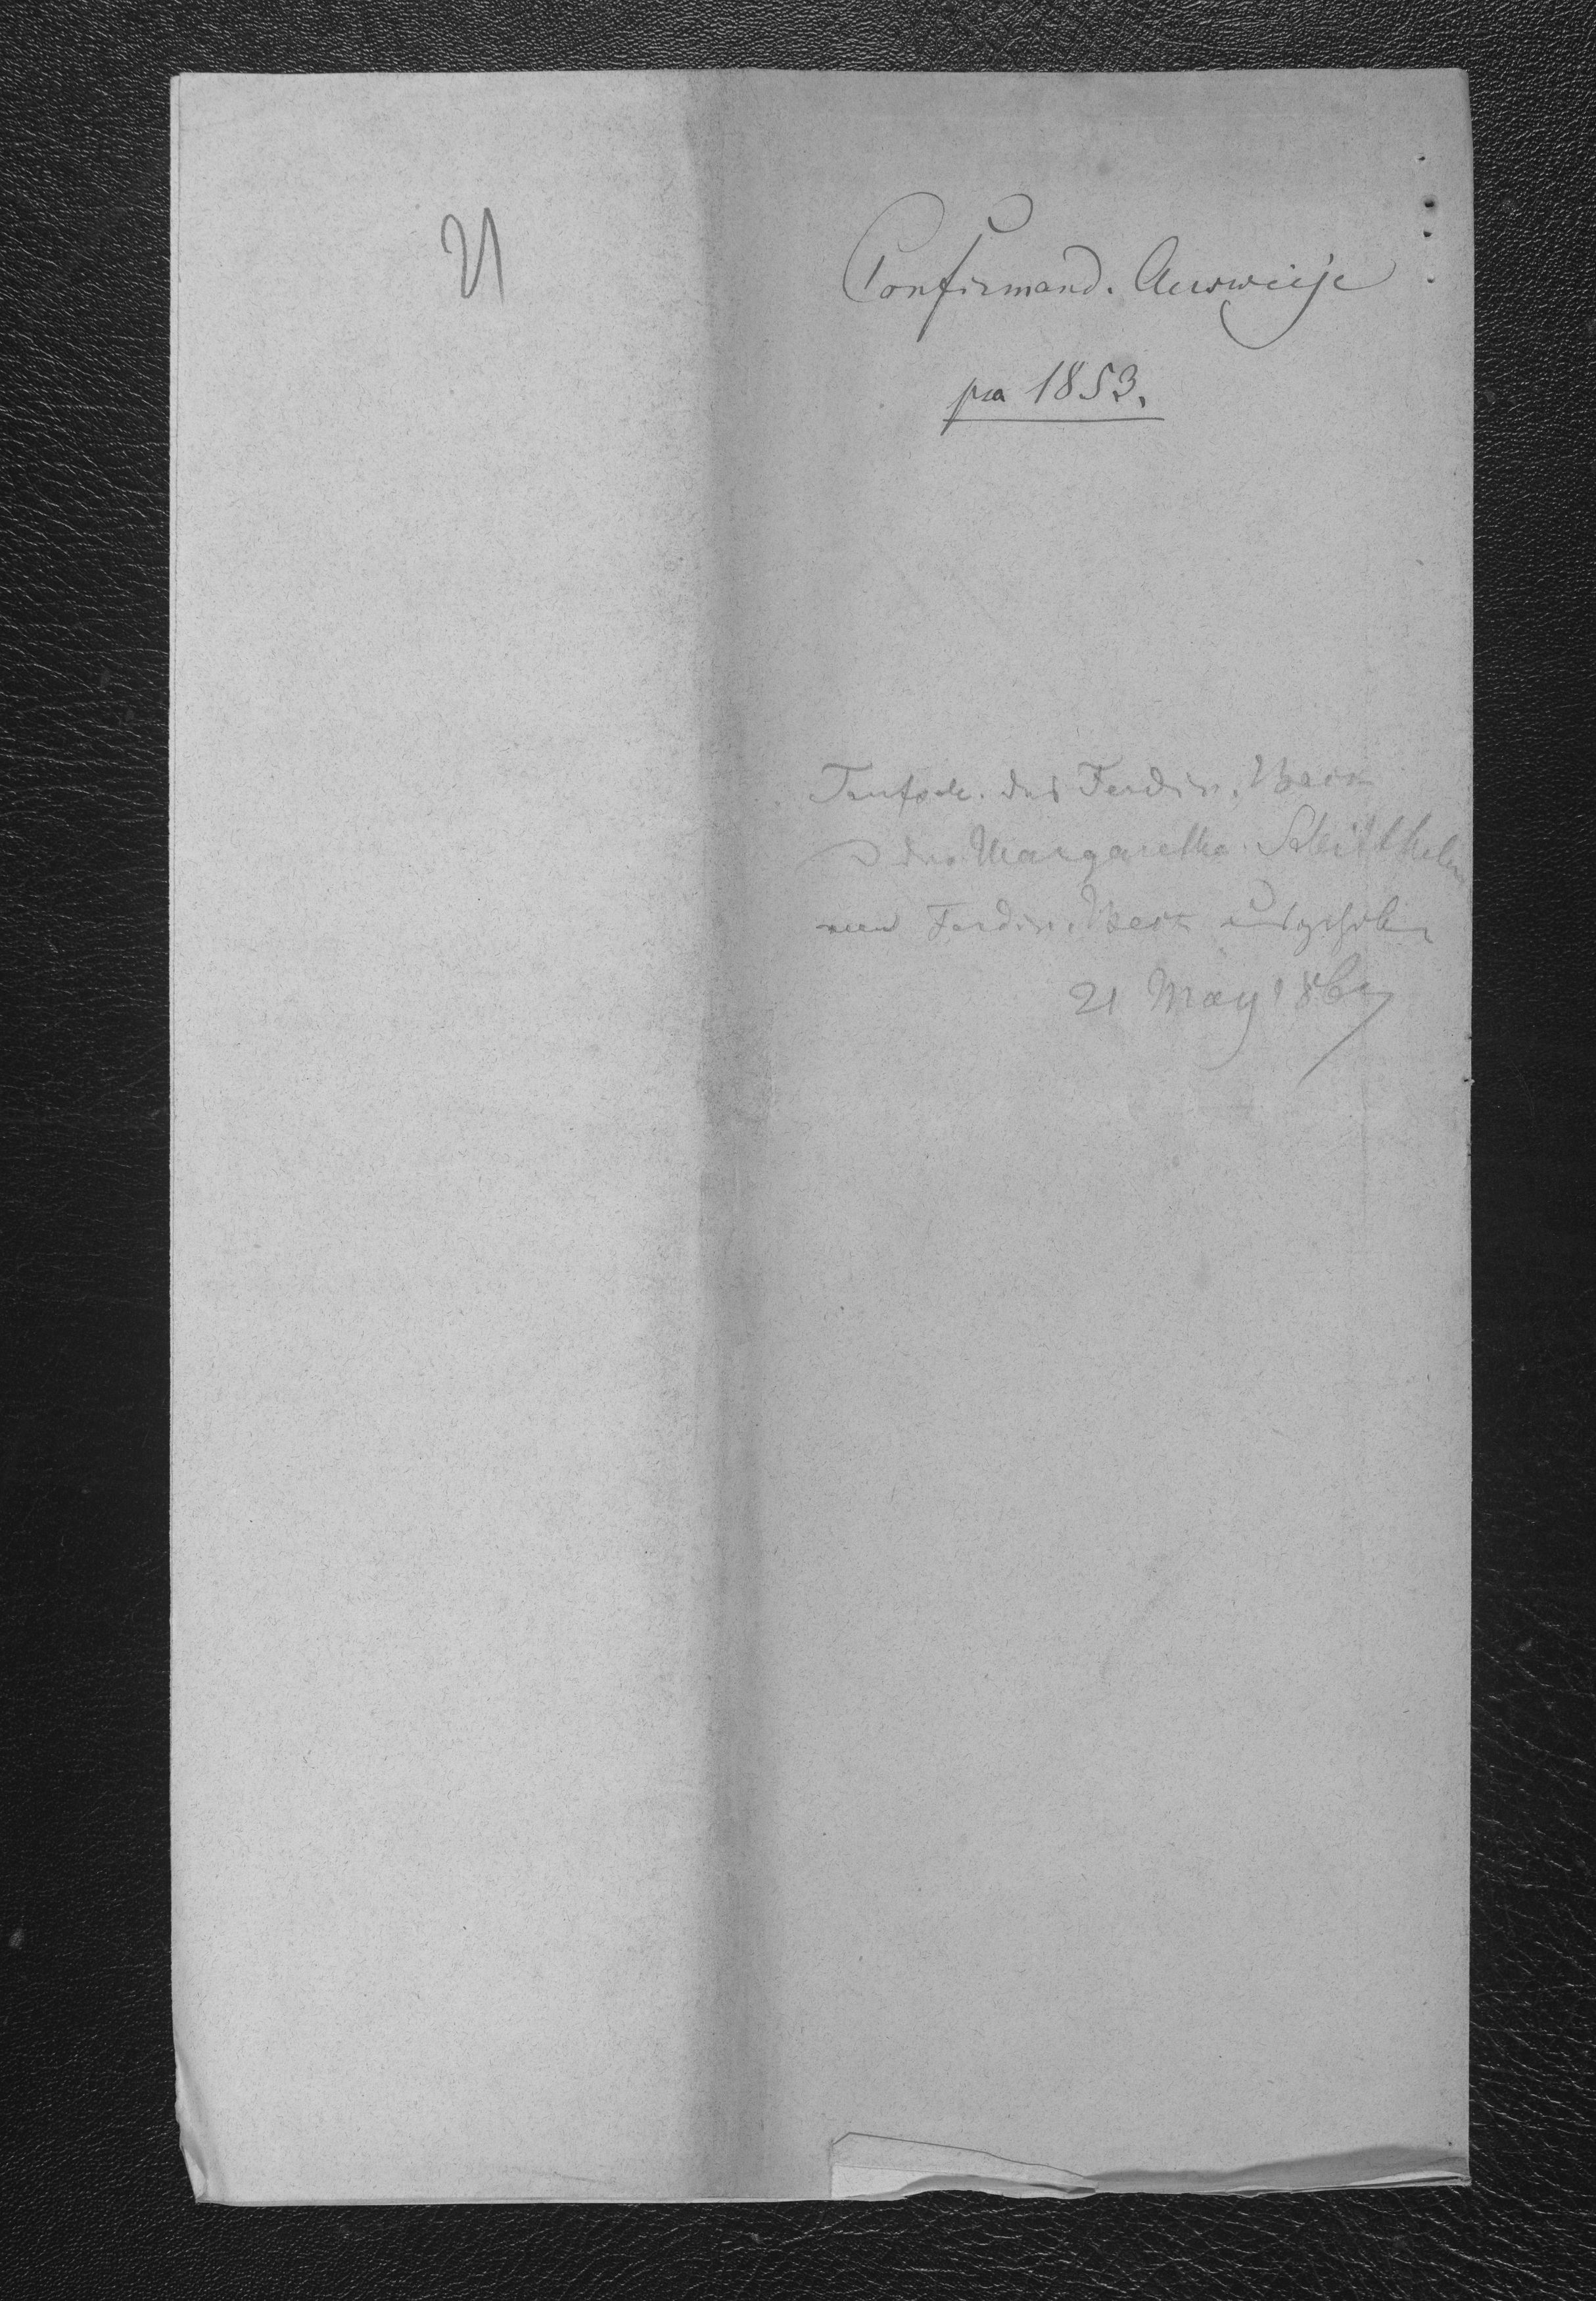 21
Confirmand. Ausweise
pro 1853.
Taufsch. des Ferdin. Beck
der Margaretha
Ferdin. Beck
21 May 186